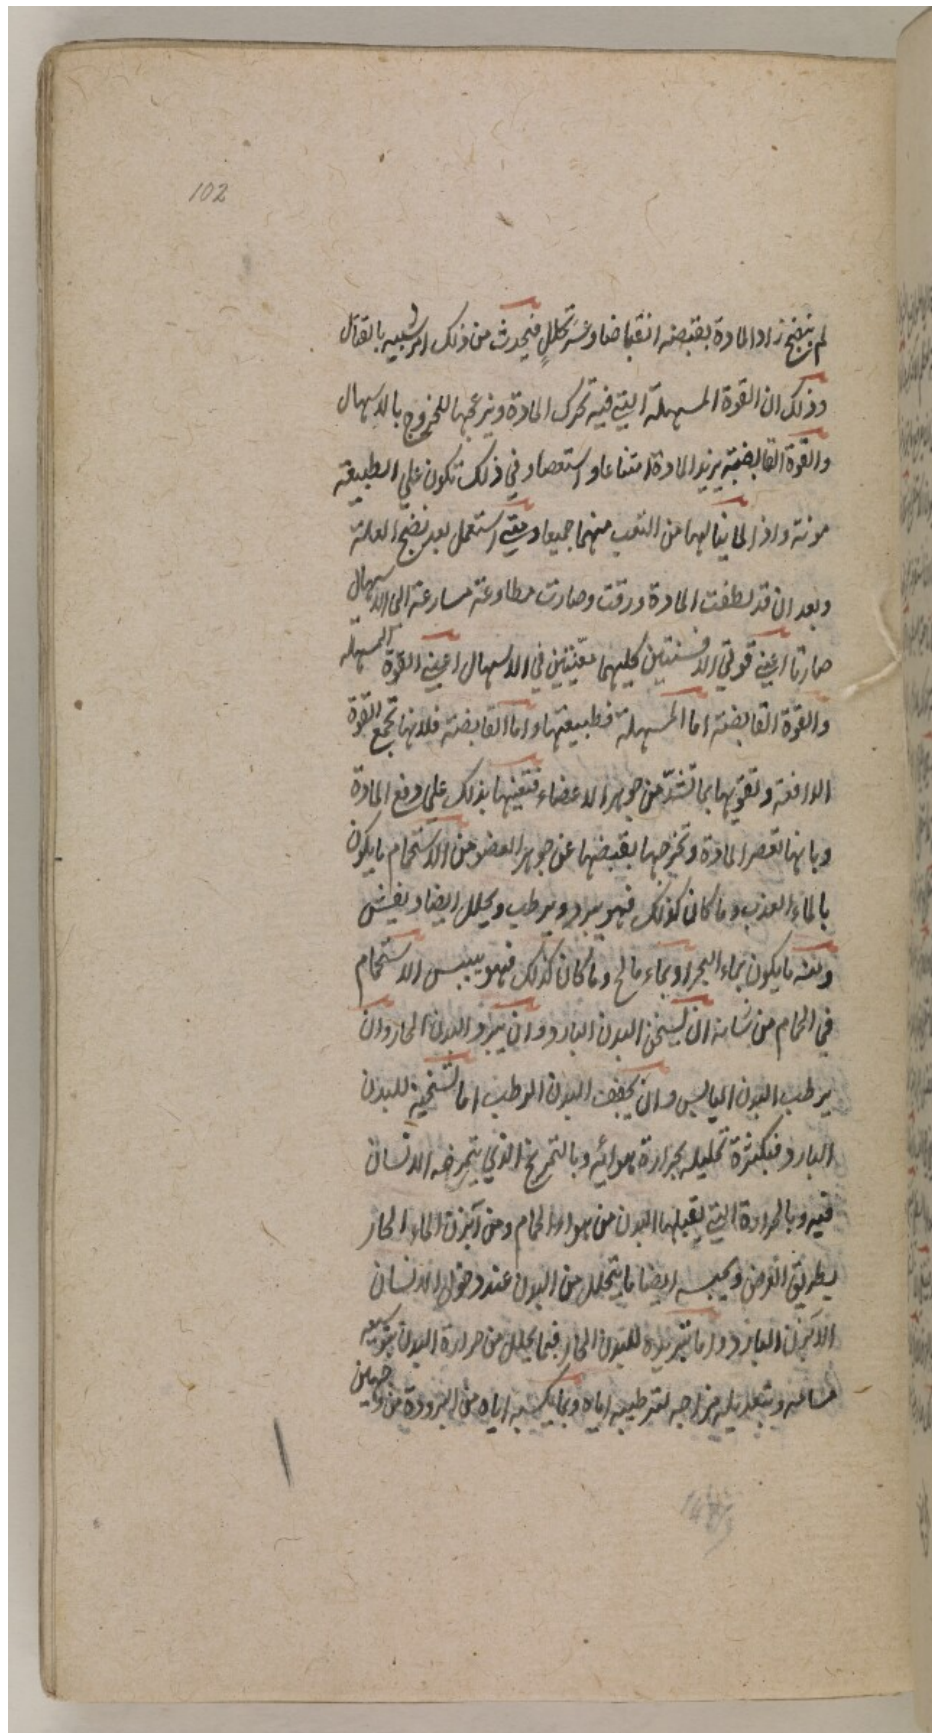 102
لم ينضج زاد المادة بقبضه انقباضا وعسر تحلل فيحدث من ذلك امر شبيه بالقتال
وذلك ان القوة المسهلة التي فيه تحرك المادة ويزعجها للخروج بالاسهال
والقوة القابضة يزيد المادة امتناعا واستعصاء وفي ذلك تكون علي الطبيعة
مونة واذا لما ينالهما من التعب منهما جميعا ومتي استعمل بعد نضج العلة
وبعد ان قد لطفت المادة ورقت وصارت مطاوعة مسارعة الي الاسهال
صارتا اعني قوتي الافسنتين كليهما معينتين في الاسهال اعني القوة المسهلة
والقوة القابضة اما المسهلة فطبيعتها واما القابضة فلانها تجمع القوة
الدافعة وتقويها بما تشد من جوهر الاعضاء فتعينها بذلك علي دفع المادة
وبانها تعصر المادة وتخرجها بقبضها عن جوهر العضو من الاستحمام ما يكون
بالماء العذب وما كان كذلك فهو يبرد ويرطب ويحلل ايضا ويفشي
ومنه ما يكون بماء البحر او بماء مالح وما كان كذلك فهو ييبس الاستحمام
في الحمام من شانه ان يسخن البدن البارد وان يبرد البدن الحار وان
يرطب البدن اليابس وان يجفف البدن الرطب اما تسخينه للبدن
البارد فبكثرة تحليله بحرارة هوائه وبالتمريخ الذي يتمرخه الانسان
فيه وبالحرارة التي يقبلها البدن من هواء الحمام ومن آبزن الماء الحار
بطريق العرض ويحبسه ايضا ما يتحلل من البدن عند دخول الانسان
الابزن البارد واما تبريده للبدن الحار فبما يحلل من حرارة البدن بتوسيعه
مسامه وبتعديله مزاجه لترطيبه اياه وبما يكسبه اياه من البرودة من وجهين